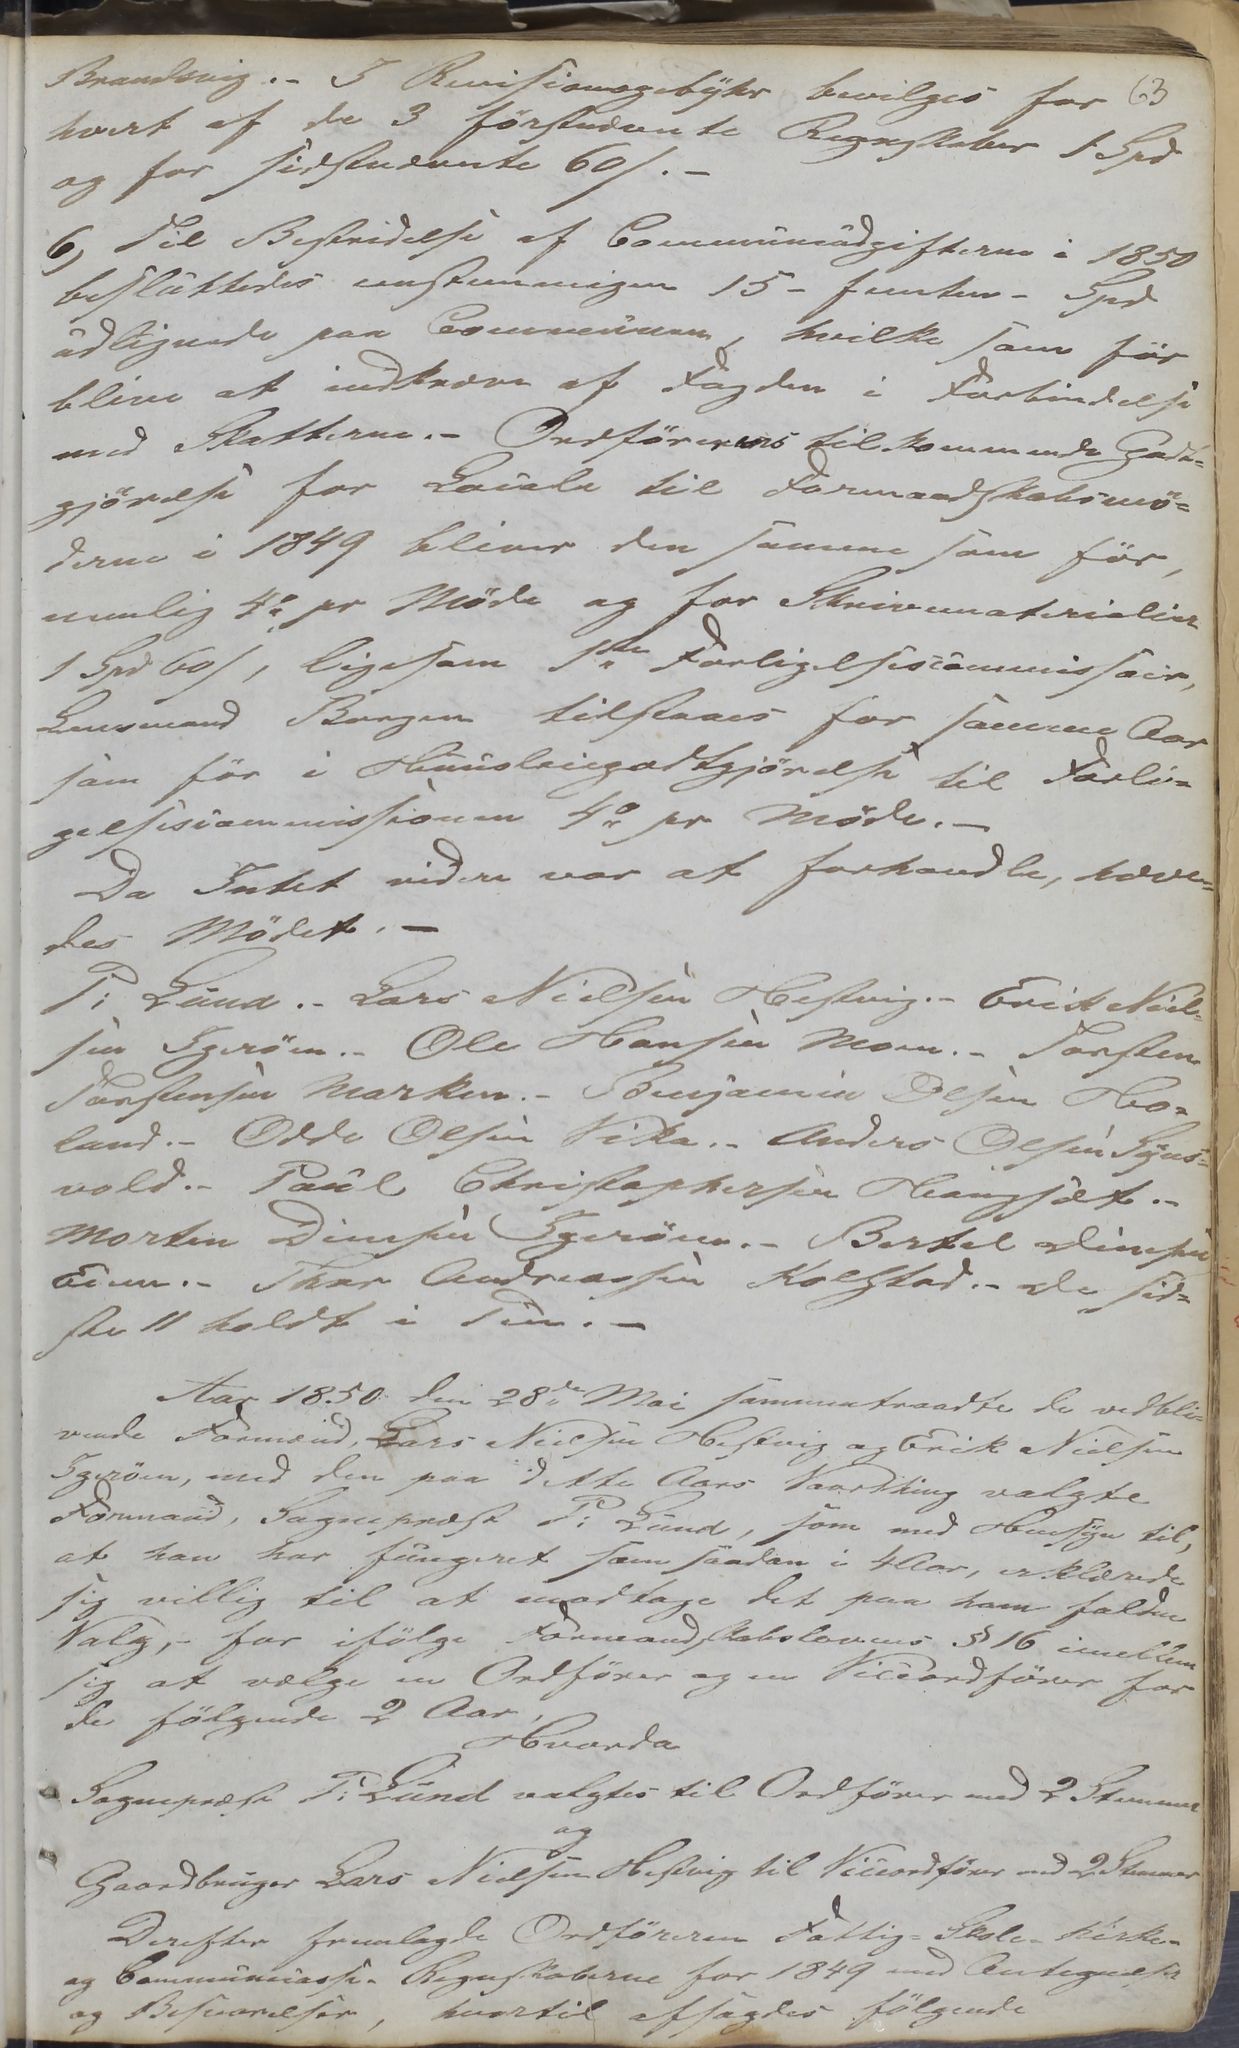 63
Brandsvig.- I Revisionsgebyhr bevilges for
hvert af de 3 förstnævnte Regnskaber 1 Spd
og for sidstnævnte 60 s.-
6) Til Bestridelse af Communeudgifterne i 1850
besluttedes eenstemmigen 15 - femten - Spd
udlignede paa Communen, hvilke som för
blive at indkræve af Fogden i Forbindelse
med Skatterne.- Ordförerens tilkommende Godt-
gjörelse for Locale til Formandskabsmö-
derne i 1849 bliver den samme som för,
nemlig 4 pr Möde og for Skrivematerialier
1 Spd 60 s, ligesom 1ste Forligelsescommissair,
Lensmand Borgen tilstaaes for samme Aar
som för i Huusleiegodtgjörelse til Forli-
gelsescommissionen 4 pr Möde.-
Da Intet videre var at forhandle, hæve-
des Mödet.-
P: Lund.- Lars Nielsen Hestvig.- Erik Niel-
sen Igeröen.- Ole Hansen Moen.- Torsten
Torstensen Marken.- Benjamin Olsen Ho-
land.- Odde Olsen Vika.- Anders Olsen
vold.- Paul Christophersen
Morten Dinesen Igeröen.- Bertel Dinesen
Thor Andreassen Kolstad.- de sid-
ste 11 holdt i Pen.-
Aar 1850 den 28de Mai sammentraadte de vedbli-
vende Formænd, Lars Nielsen Hestvig og Erik Nielsen
Igeröen, med den paa dette Aars Vaarthing valgte
Formand, Sognepræst P: Lund, som med Hensyn til,
at han har fungeret som saadan i 4 Aar, erklærede
sig villig til at modtage det paa ham faldne
Valg,- for ifölge Formandskabslovens § 16 imellem
sig at vælge en Ordförer og en Viceordförer for
de fölgende 2 Aar,
Hvorda
Sognepræst P: Lund valgtes til Ordförer med 2 Stemmer
og
Gaardbruger Lars Nielsen Hestvig til Viceordförer med 2 Stemmer
Derefter fremlagde Ordföreren Fattig- Skole- Kirke-
og Communecasse- Regnskaberne for 1849 med Antegnelser
og Besvarelser, hvortil afsagdes fölgende